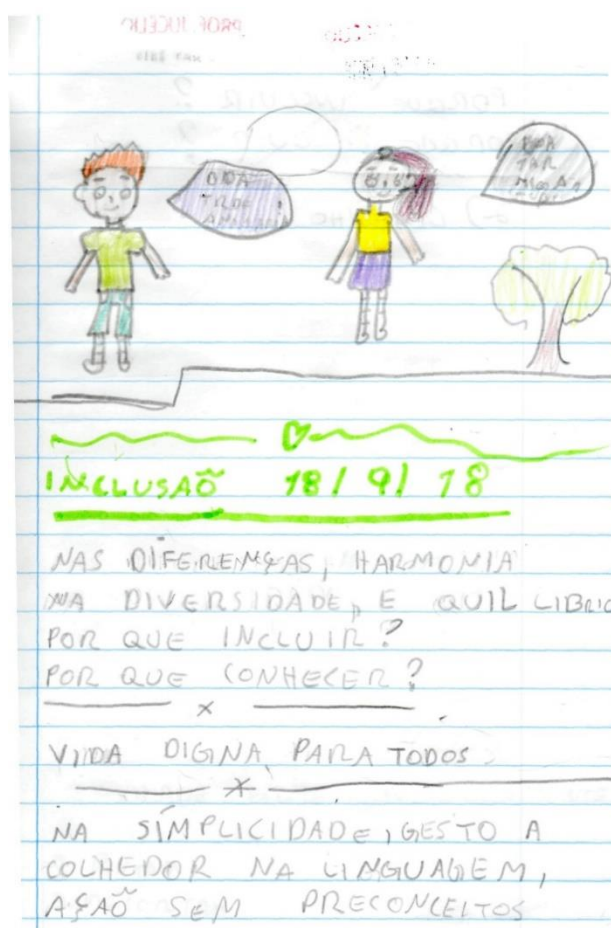 BOA
TRDE
BOA
TAR
INCLUSAÕ 18/9/18
NAS DIFERENÇAS, HARMONIA
NA DIVERSIDADE, E QUIL LIBRIO
POR QUE INCLUIR?
POR QUE CONHECER?
VIIDA DIGINA PARA TODOS
NA SÍMPLICIDADE, GESTO A
COLHEDOR NA LINGUAGEM,
AÇAÕ SEM PRECONCEITOS